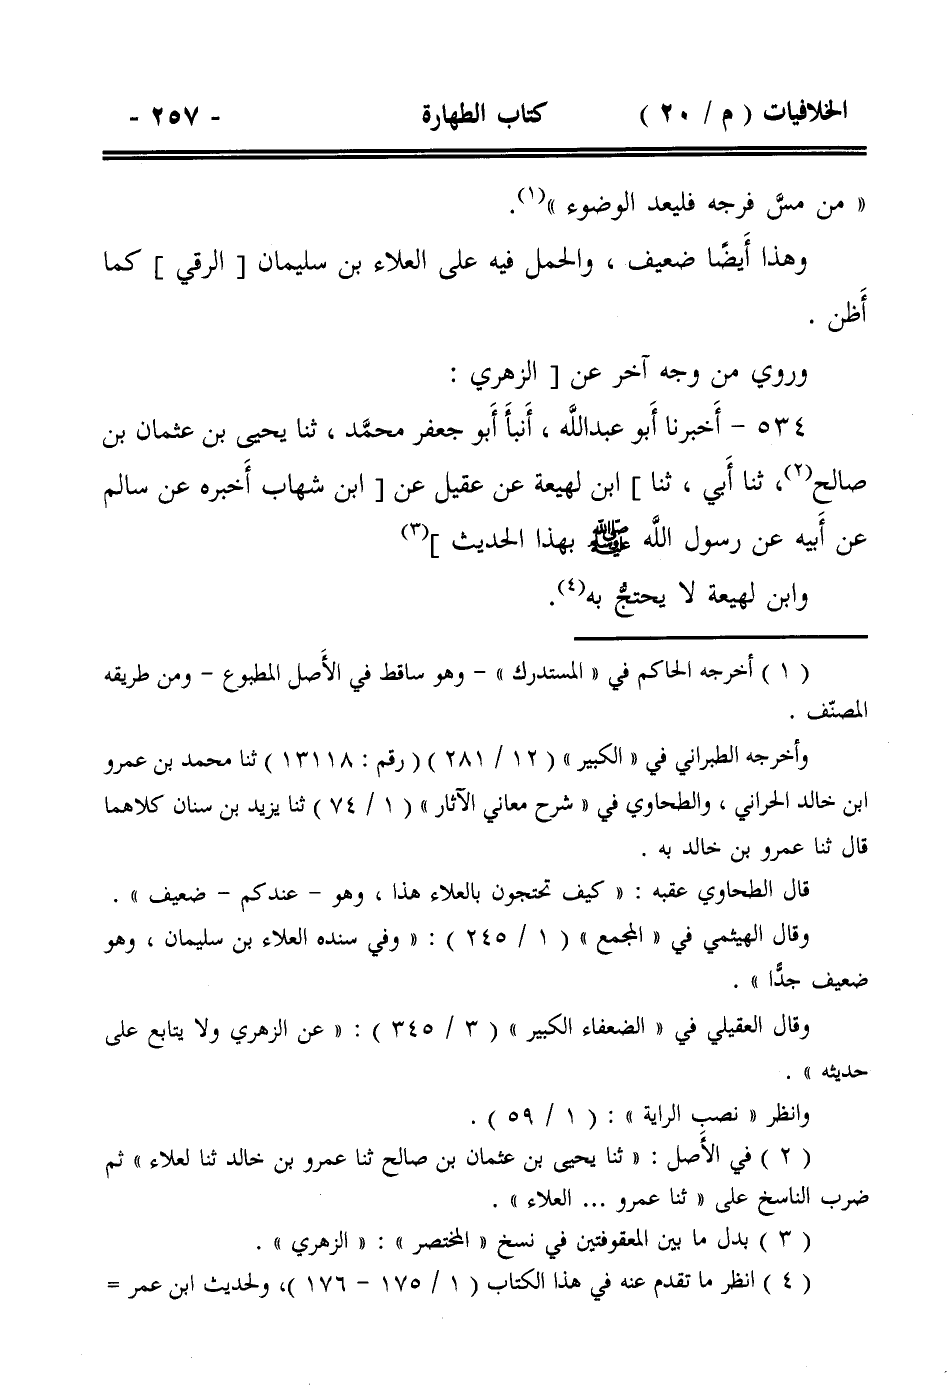 الخلافيات ( م / ٢٠ ) كتاب الطهارة - ٢٥٧ -
« من مسَّ فرجه فليعد الوضوء »(١).
وهذا أَيضًا ضعيف ، والحمل فيه على العلاء بن سليمان [ الرقي ] كما
أَظن .
وروي من وجه آخر عن [ الزهري :
٥٣٤ - أَخبرنا أَبو عبداللَّه ، أَنبأَ أَبو جعفر محمَّد ، ثنا يحيى بن عثمان بن
صالح(٢)، ثنا أَبي ، ثنا ] ابن لهيعة عن عقيل عن [ ابن شهاب أَخبره عن سالم
عن أَبيه عن رسول اللَّه ﷺ بهذا الحديث ](٣)
وابن لهيعة لا يحتجُّ به(٤).
( ١ ) أخرجه الحاكم في « المستدرك » - وهو ساقط في الأَصل المطبوع - ومن طريقه
المصنّف .
وأخرجه الطبراني في « الكبير » ( ١٢ / ٢٨١ ) ( رقم : ١٣١١٨ ) ثنا محمد بن عمرو
ابن خالد الحراني ، والطحاوي في « شرح معاني الآثار » ( ١ / ٧٤ ) ثنا يزيد بن سنان كلاهما
قال ثنا عمرو بن خالد به .
قال الطحاوي عقبه : « كيف تحتجون بالعلاء هذا ، وهو - عندكم - ضعيف » .
وقال الهيثمي في « المجمع » ( ١ / ٢٤٥ ) : « وفي سنده العلاء بن سليمان ، وهو
ضعيف جدًّا » .
وقال العقيلي في « الضعفاء الكبير » ( ٣ / ٣٤٥ ) : « عن الزهري ولا يتابع على
حديثه » .
وانظر « نصب الراية » : ( ١ / ٥٩ ) .
( ٢ ) في الأَصل : « ثنا يحيى بن عثمان بن صالح ثنا عمرو بن خالد ثنا لعلاء » ثم
ضرب الناسخ على « ثنا عمرو ... العلاء » .
( ٣ ) بدل ما بين المعقوفتين في نسخ « المختصر » : « الزهري » .
( ٤ ) انظر ما تقدم عنه في هذا الكتاب ( ١ / ١٧٥ - ١٧٦ )، ولحديث ابن عمر =